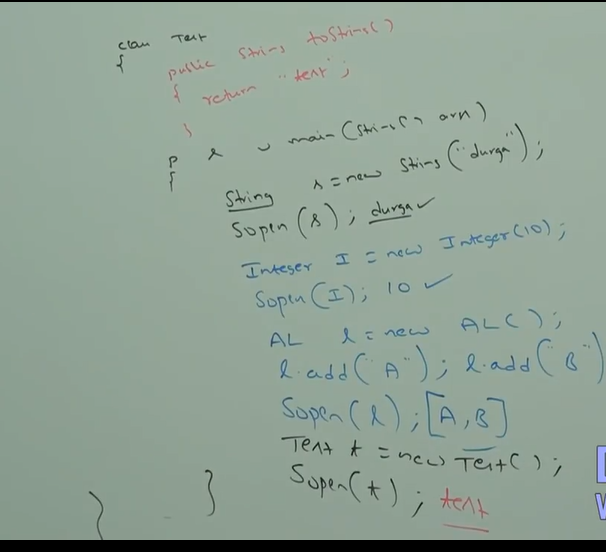 class Test
{
public String toString()
{
return "test";
}
p s v main(String[] args)
{
String s = new String("durga");
Sopln(s); durga ✓
Integer I = new Integer(10);
Sopln(I); 10 ✓
AL l = new AL();
l.add("A"); l.add("B")
Sopln(l); [A,B]
Test t = new Test();
Sopln(t); test
}
}